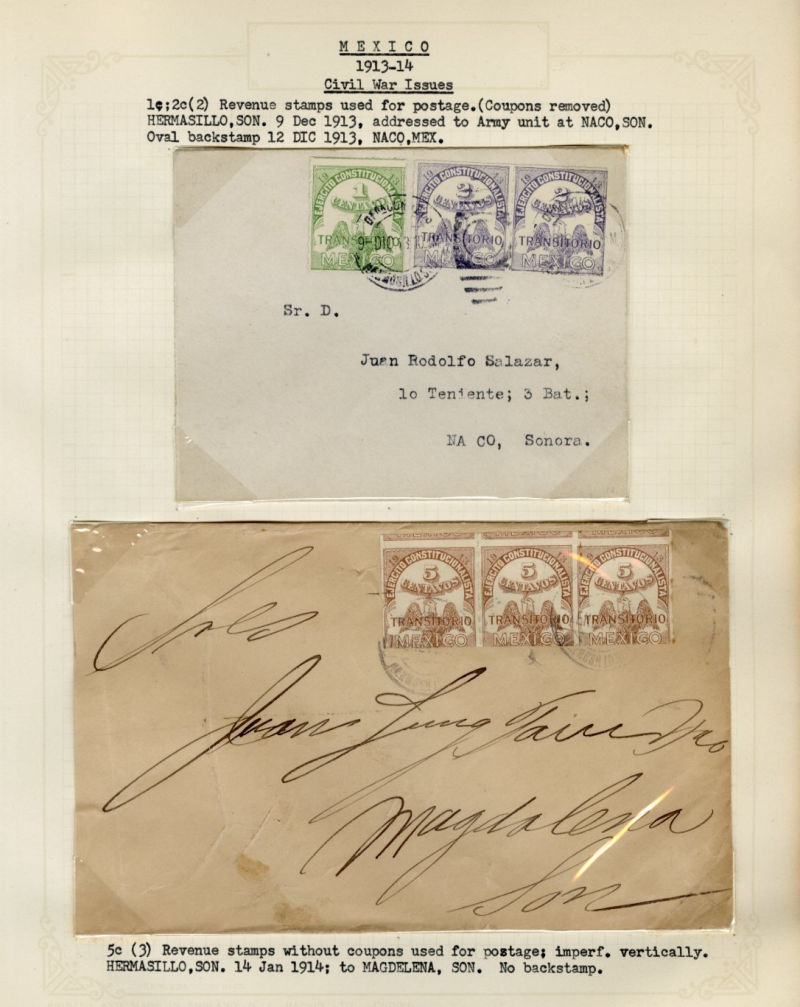 MEXICO
1913-14
Civil War Issues
1¢;2c(2) Revenue stamps used for postage.(Coupons removed)
HERMASILLO,SON. 9 Dec 1913, addressed to Army unit at NACO,SON.
Oval backstamp 12 DIC 1913, NACO,MEX.
19
EJERCITO CONSTITUCIONALISTA
1
CENTAVO
TRANSITORIO
MEXICO
19
EJERCITO CONSTITUCIONALISTA
2
CENTAVOS
TRANSITORIO
MEXICO
19
EJERCITO CONSTITUCIONALISTA
2
CENTAVOS
TRANSITORIO
MEXICO
9-DIC
Sr. D.
Juan Rodolfo Salazar,
1o Teniente; 3 Bat.;
NA CO, Sonora.
19
EJERCITO CONSTITUCIONALISTA
5
CENTAVOS
TRANSITORIO
MEXICO
19
EJERCITO CONSTITUCIONALISTA
5
CENTAVOS
TRANSITORIO
MEXICO
19
EJERCITO CONSTITUCIONALISTA
5
CENTAVOS
TRANSITORIO
MEXICO
Juan Lung Tain Hno
Magdalena
Son
5c (3) Revenue stamps without coupons used for postage; imperf. vertically.
HERMASILLO,SON. 14 Jan 1914; to MAGDELENA, SON. No backstamp.